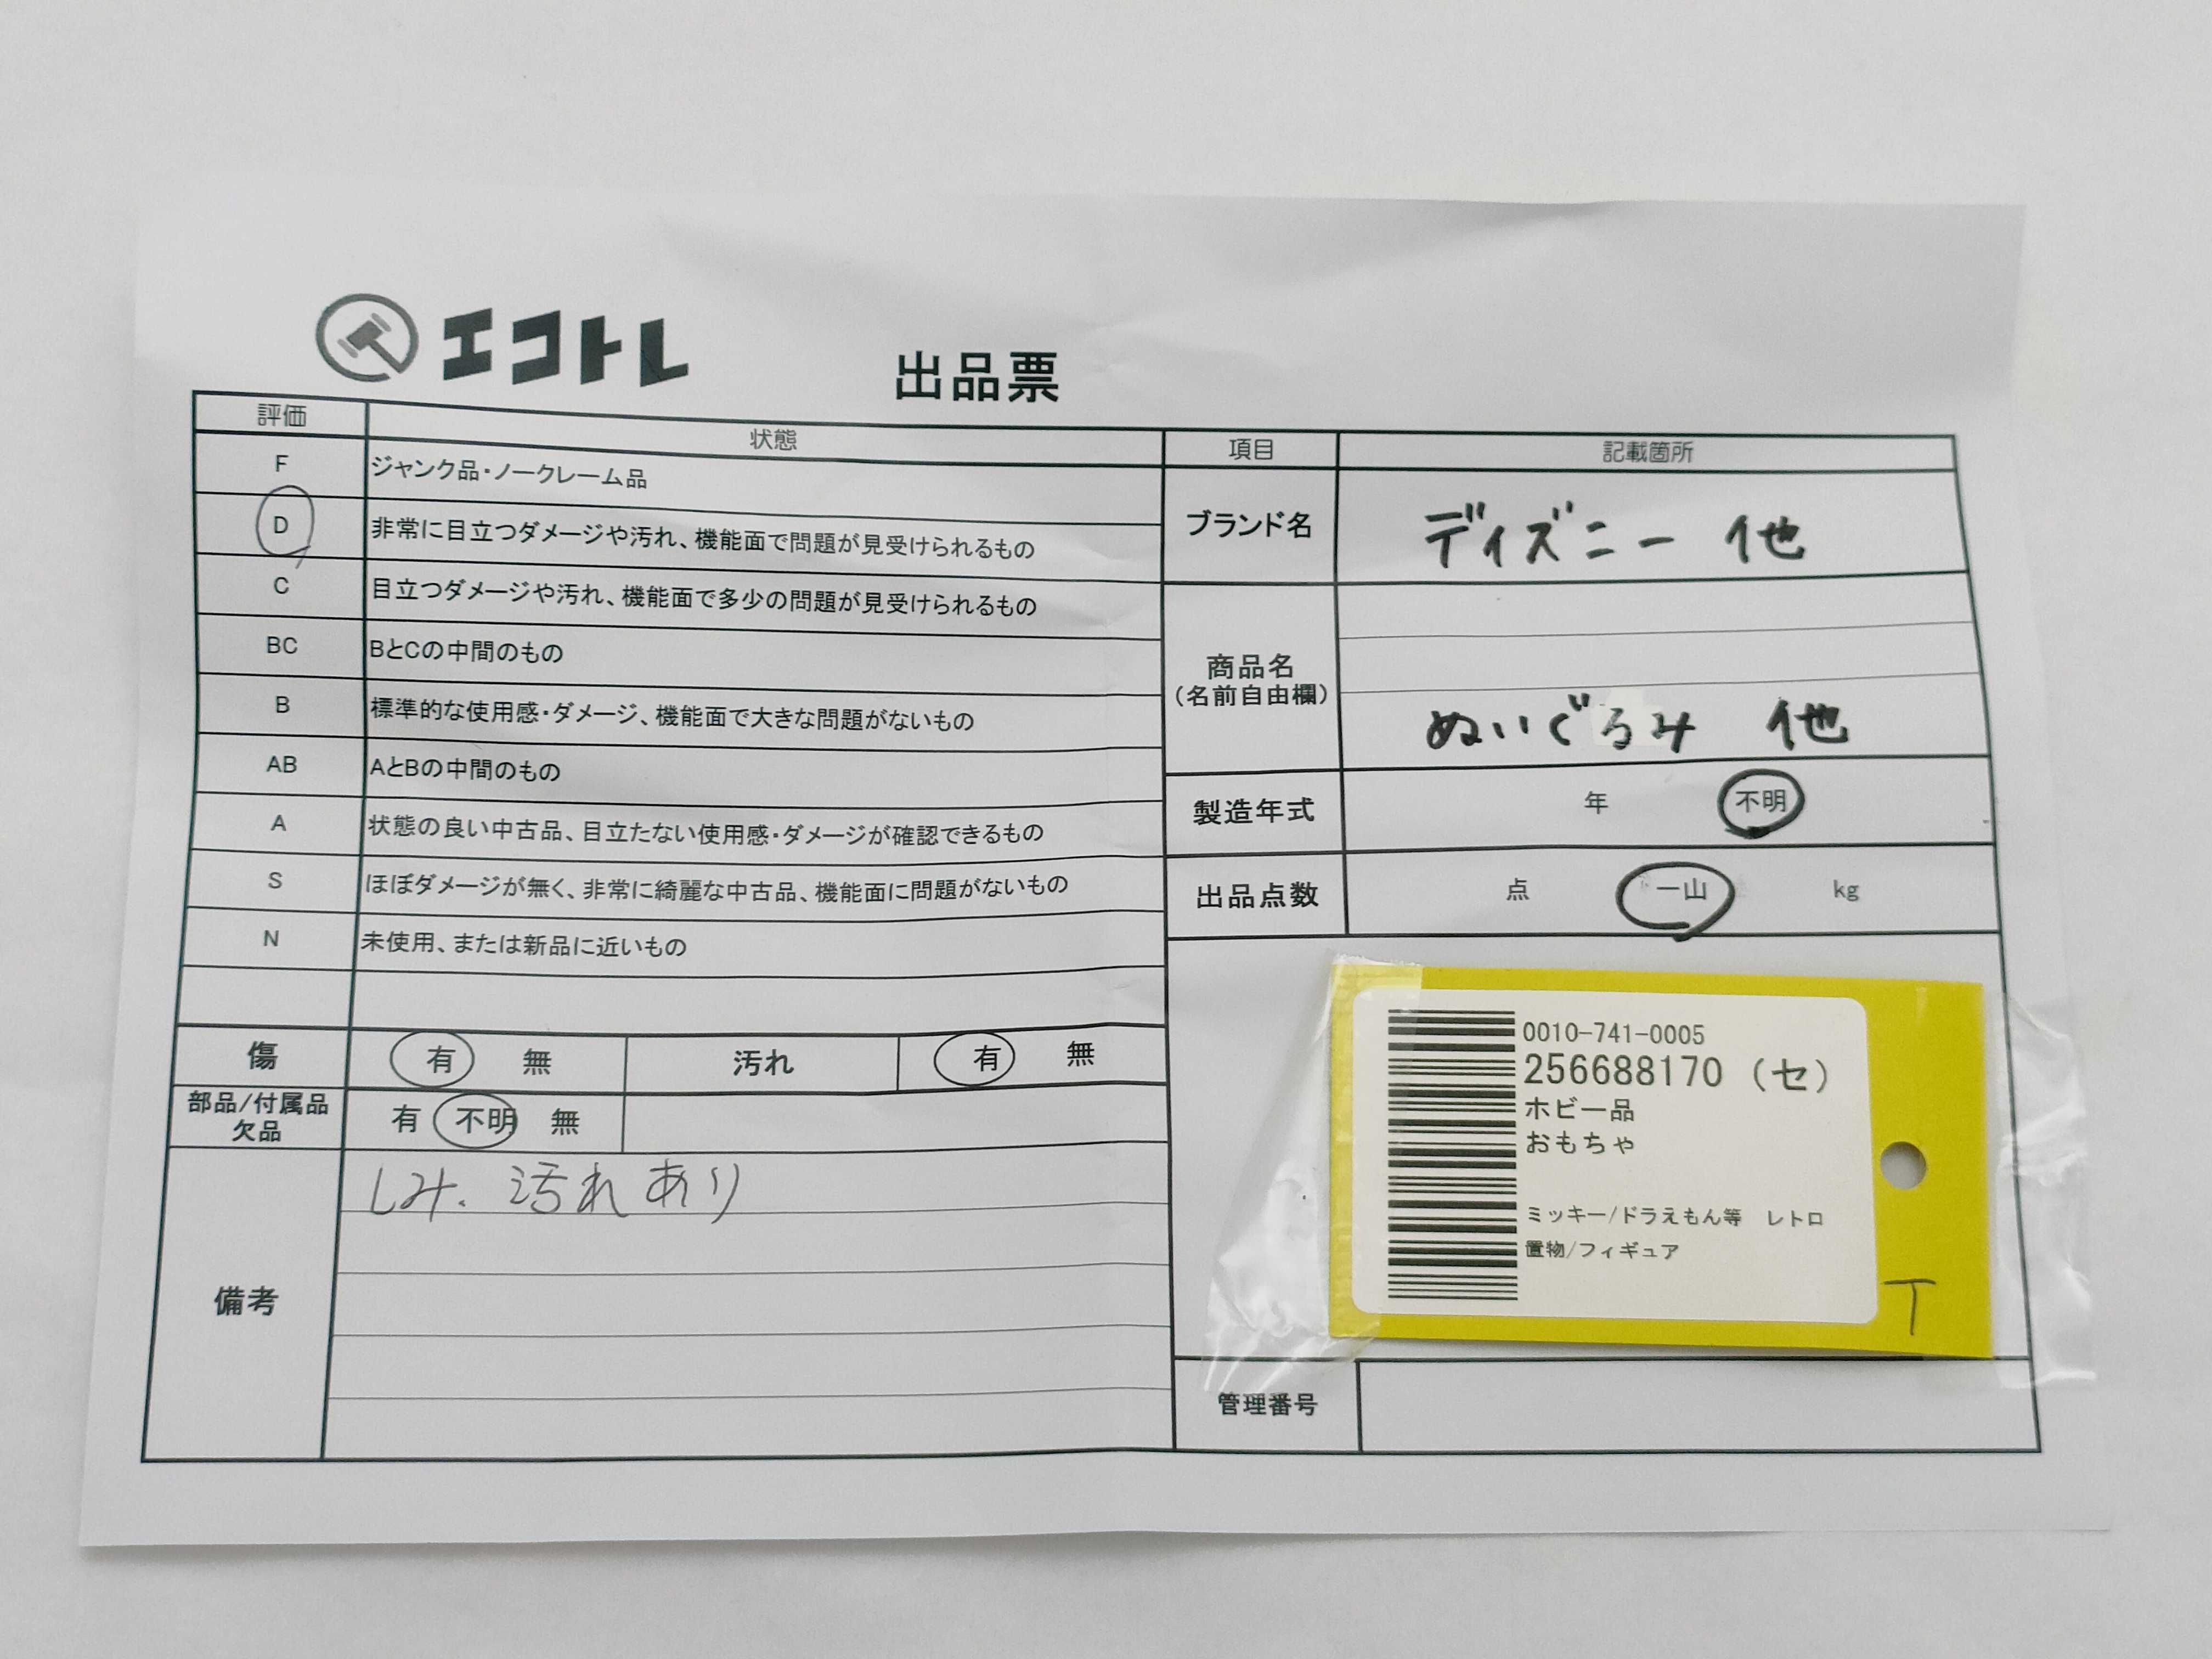 エコトレ
出品票
評価 状態
F ジャンク品・ノークレーム品
D 非常に目立つダメージや汚れ、機能面で問題が見受けられるもの
C 目立つダメージや汚れ、機能面で多少の問題が見受けられるもの
BC BとCの中間のもの
B 標準的な使用感・ダメージ、機能面で大きな問題がないもの
AB AとBの中間のもの
A 状態の良い中古品、目立たない使用感・ダメージが確認できるもの
S ほぼダメージが無く、非常に綺麗な中古品、機能面に問題がないもの
N 未使用、または新品に近いもの
傷 有 無 汚れ 有 無
部品/付属品
欠品
有 不明 無
備考
しみ、汚れあり
項目 記載箇所
ブランド名 ディズニー 他
商品名
(名前自由欄)
ぬいぐるみ 他
製造年式 年 不明
出品点数 点 一山 kg
0010-741-0005
256688170 (セ)
ホビー品
おもちゃ
ミッキー/ドラえもん等 レトロ
置物/フィギュア
T
管理番号